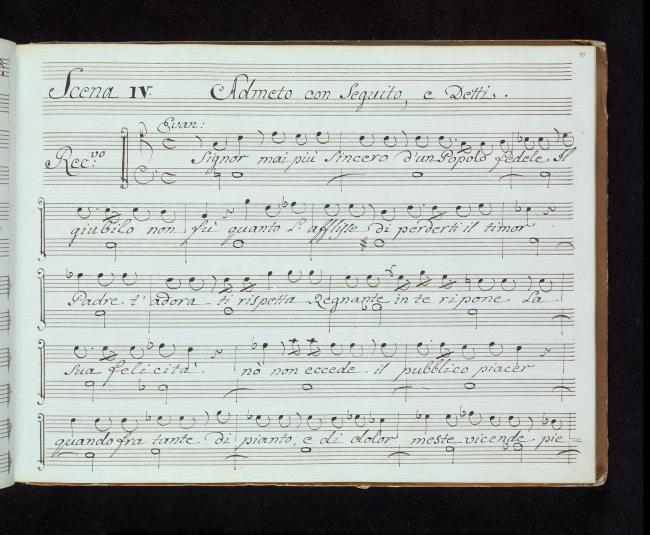 Scena IV. Admeto con Seguito, e Detti.
Evan:
Rec:vo
Signor mai più sincero d'un Popolo fedele Il
giubilo non fù quanto l'afflisse di perderti il timor
Padre t'adora ti rispetta Regnante in te ripone La
sua felicità. nò non eccede il pubblico piacer
quando fra tante di pianto, e di dolor meste vicende pie=